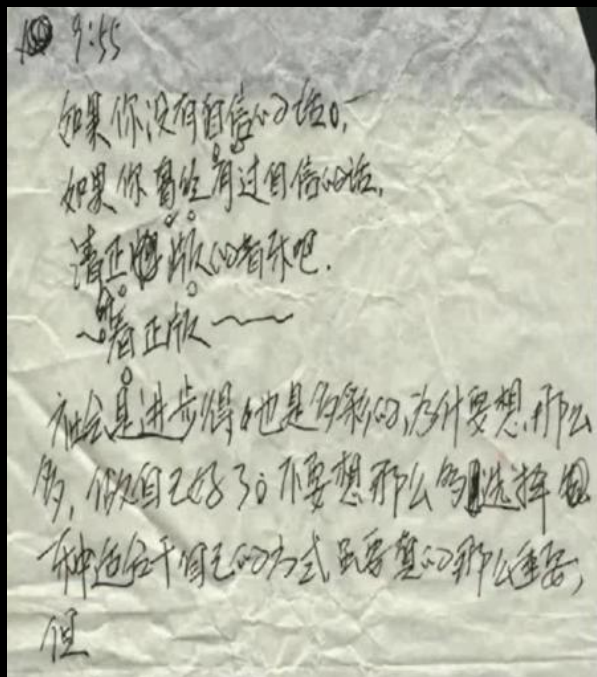 9:55
如果你没有自信的话。
如果你曾经有过自信的话,
请正版的看尔吧.
~看正版~
社会是进步得,也是多彩的,为什要想,那么
多,做自己好了。不要想那么多选择
一种适合于自己的方式 要真的那么重要,
但